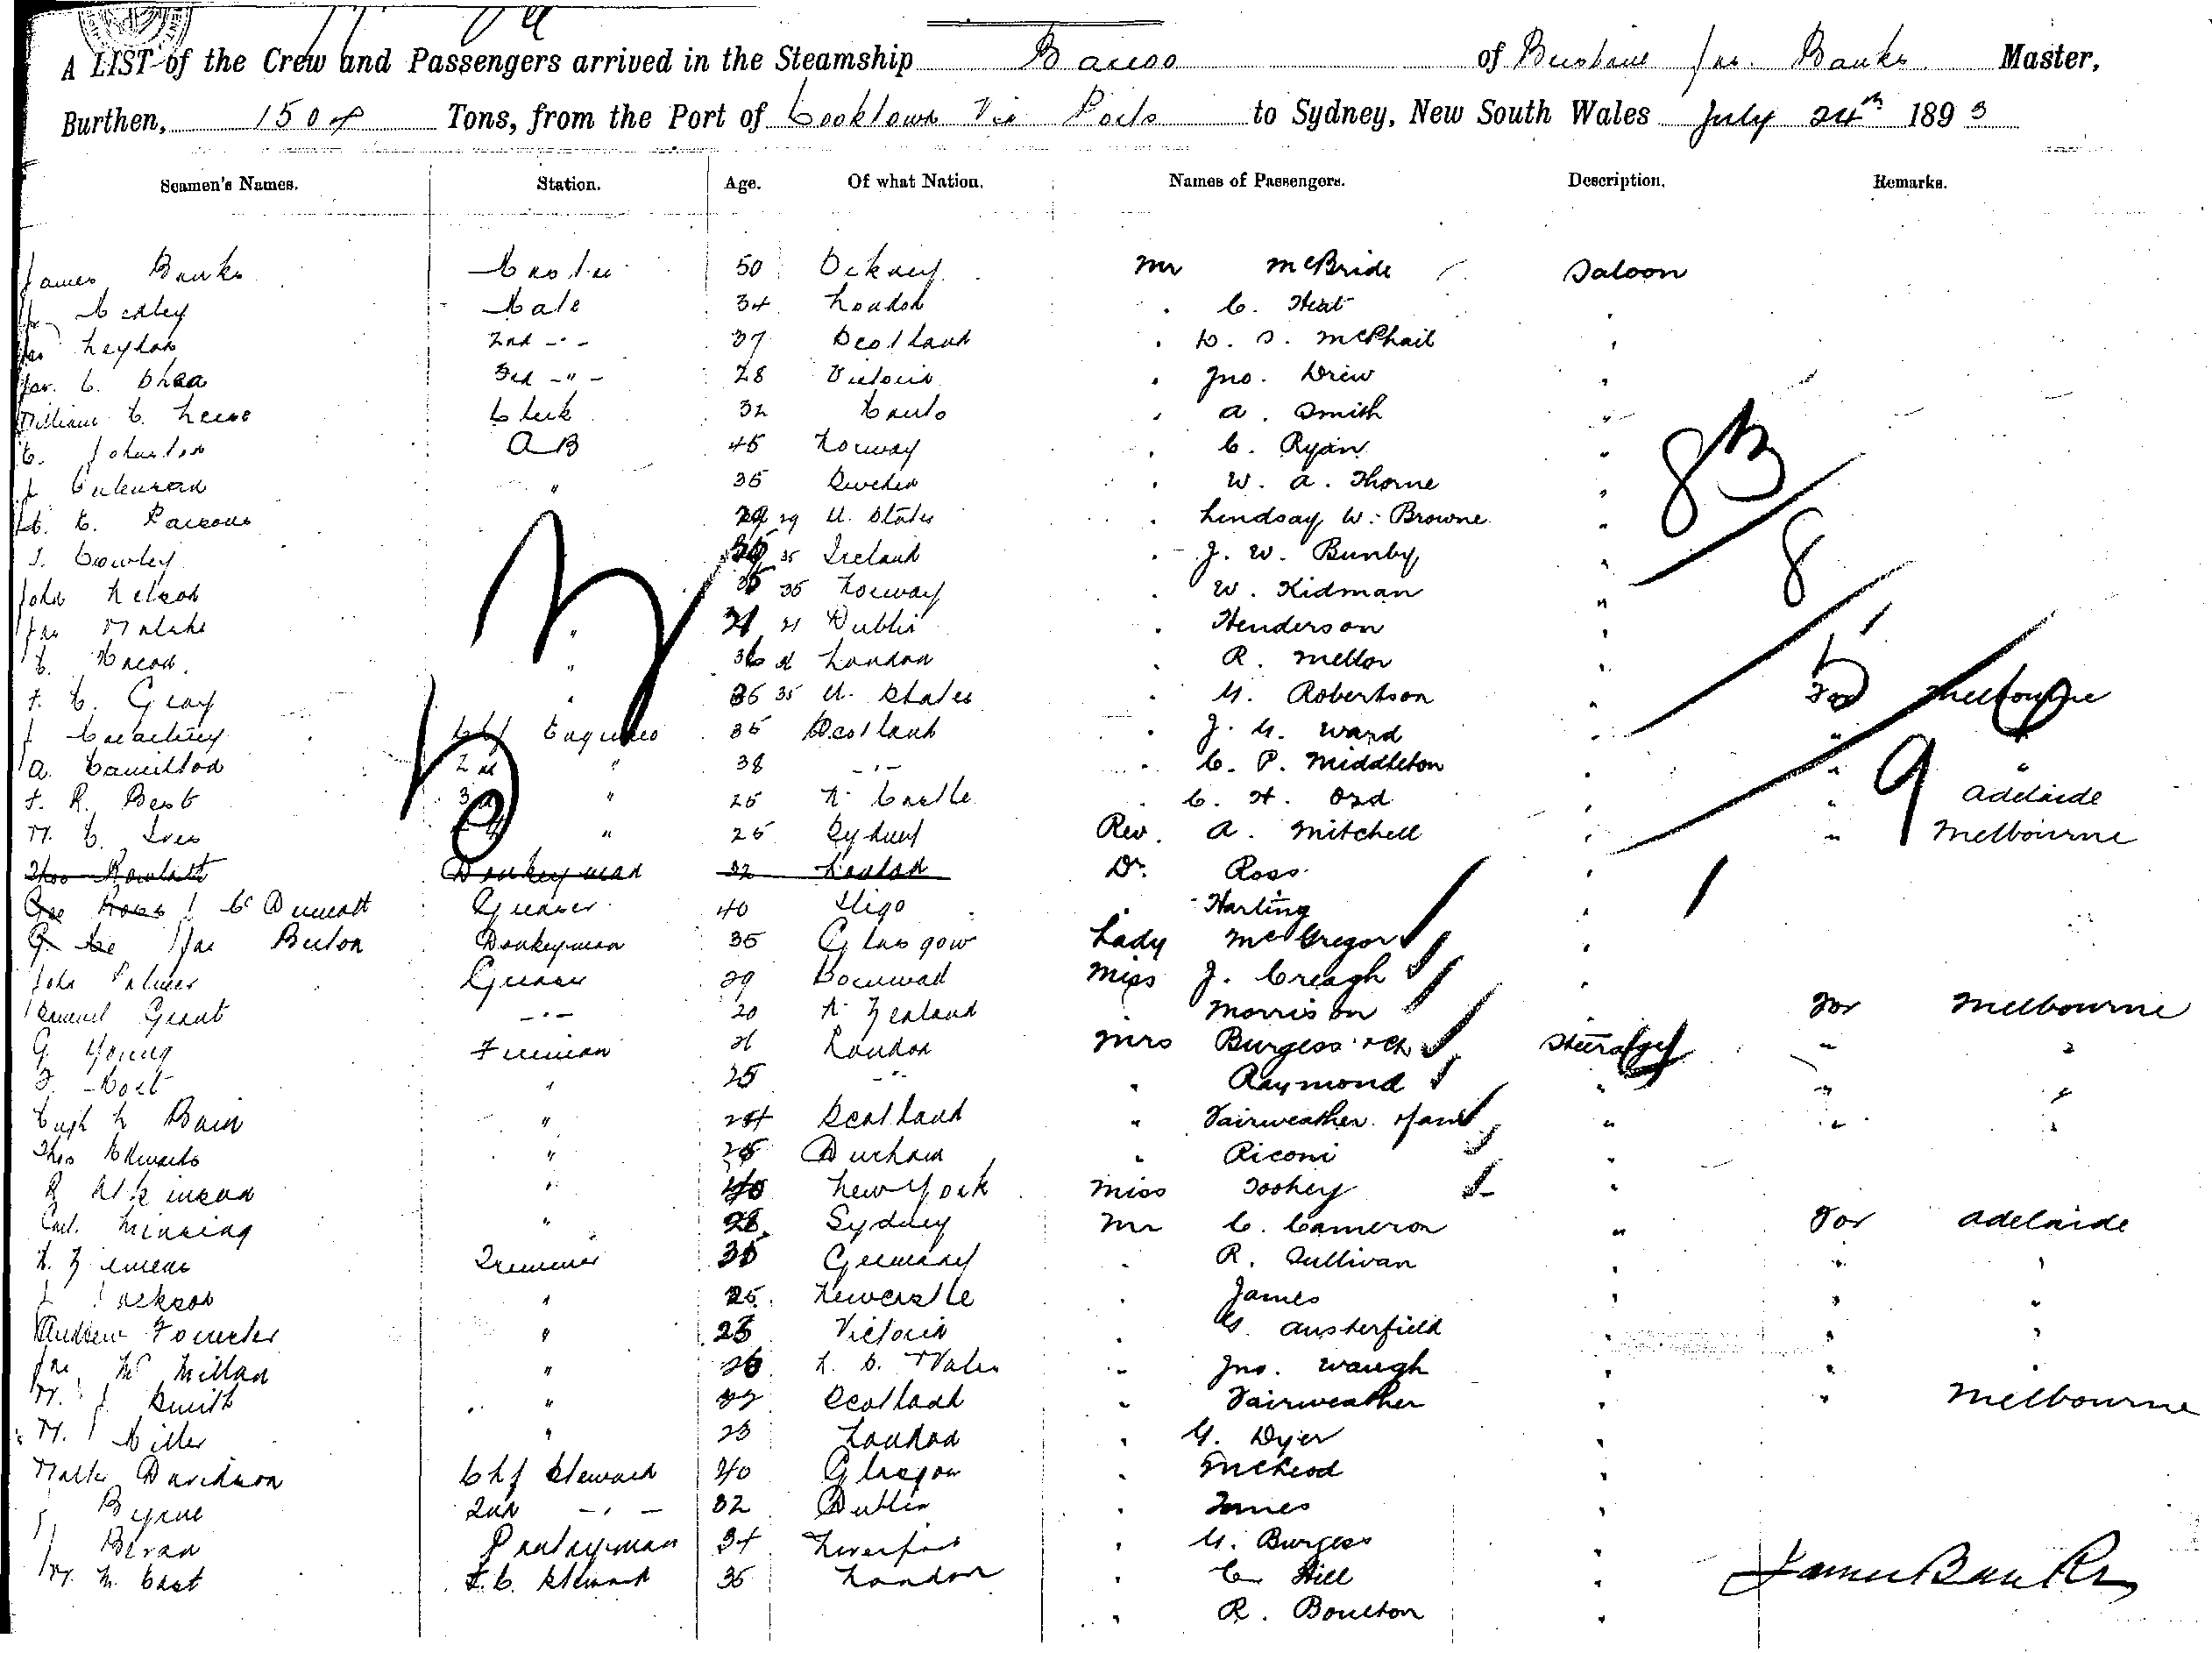 A LIST of the Crew and Passengers arrived in the Steamship Barcoo of Brisbane Jas. Banks Master,
Burthen, 1504 Tons, from the Port of Cooktown Via Ports to Sydney, New South Wales July 24th 1893
Seamen's Names. Station. Age. Of what Nation. Names of Passengers. Description. Remarks.
James Banks Master 50 Orkney Mr McBride Saloon
Mate 34 London " C. Heat "
Leyton 2nd -"- 37 Scotland " D. S. McPhail "
Jas. C. Shea 3rd -"- 28 Victoria " Jno. Drew "
William C. Clerk 32 " A. Smith "
C. Johnston AB 45 Norway " C. Ryan "
J " 35 Sweden " W. A. Thorne "
C. Parsons 29 29 U. States " Lindsay W. Browne "
J. Crowley 35 Ireland " J. W. Bunby "
John Nelson 35 35 Norway " W. Kidman "
Jas " 21 21 Dublin " Henderson "
" 36 London " R. Mellor "
F. C. Gray " 35 35 U. States " G. Robertson " For Melbourne
J Chf Engineer 35 Scotland " J. G. Ward " " "
A. Hamilton 2nd " 38 -"- " C. P. Middleton " " "
F. R. Best 3rd " 25 N. Castle " C. H. Ord " " Adelaide
W. C. Ives " 25 Sydney Rev. A. Mitchell " " Melbourne
Thos Donkeyman 32 London Dr. Ross "
Geo Ross J McDermott Greaser 40 Sligo " Harting "
Jas Burton Donkeyman 35 Glasgow Lady McGregor "
John Palmer Greaser 29 Cornwall Miss J. Creagh "
Samuel Grant -"- 20 N. Zealand " Morrison " For Melbourne
G Young Fireman 21 London Mrs Burgess & Ch Steerage " "
" 25 -"- " Raymond " " "
Hugh Bain " 24 Scotland " Fairweather & fam " " "
Thos Edwards " 25 Durham " Riconi "
R Atkinson " 40 New York Miss Toohey "
" 28 Sydney Mr C. Cameron " For Adelaide
Trimmer 35 Germany " R. Sullivan " " "
J Jackson " 25 Newcastle " James " " "
Andrew Forrester " 23 Victoria " G. Austerfield " " "
Jno McMillan " 26 N. S. Wales " Jno. Waugh " " "
W. J. Smith " Scotland " Fairweather " " Melbourne
W. J Miller " 23 London " G. Dyer "
Walter Davidson Chf Steward 40 Glasgow " McLeod "
J. Byrne 2nd -"- 32 Dublin " Jones "
J. Bevan Pantryman 34 Liverpool " G. Burgess "
W. M. East F.C. Steward 35 London " C Hill "
" R. Boulton "
James Banks